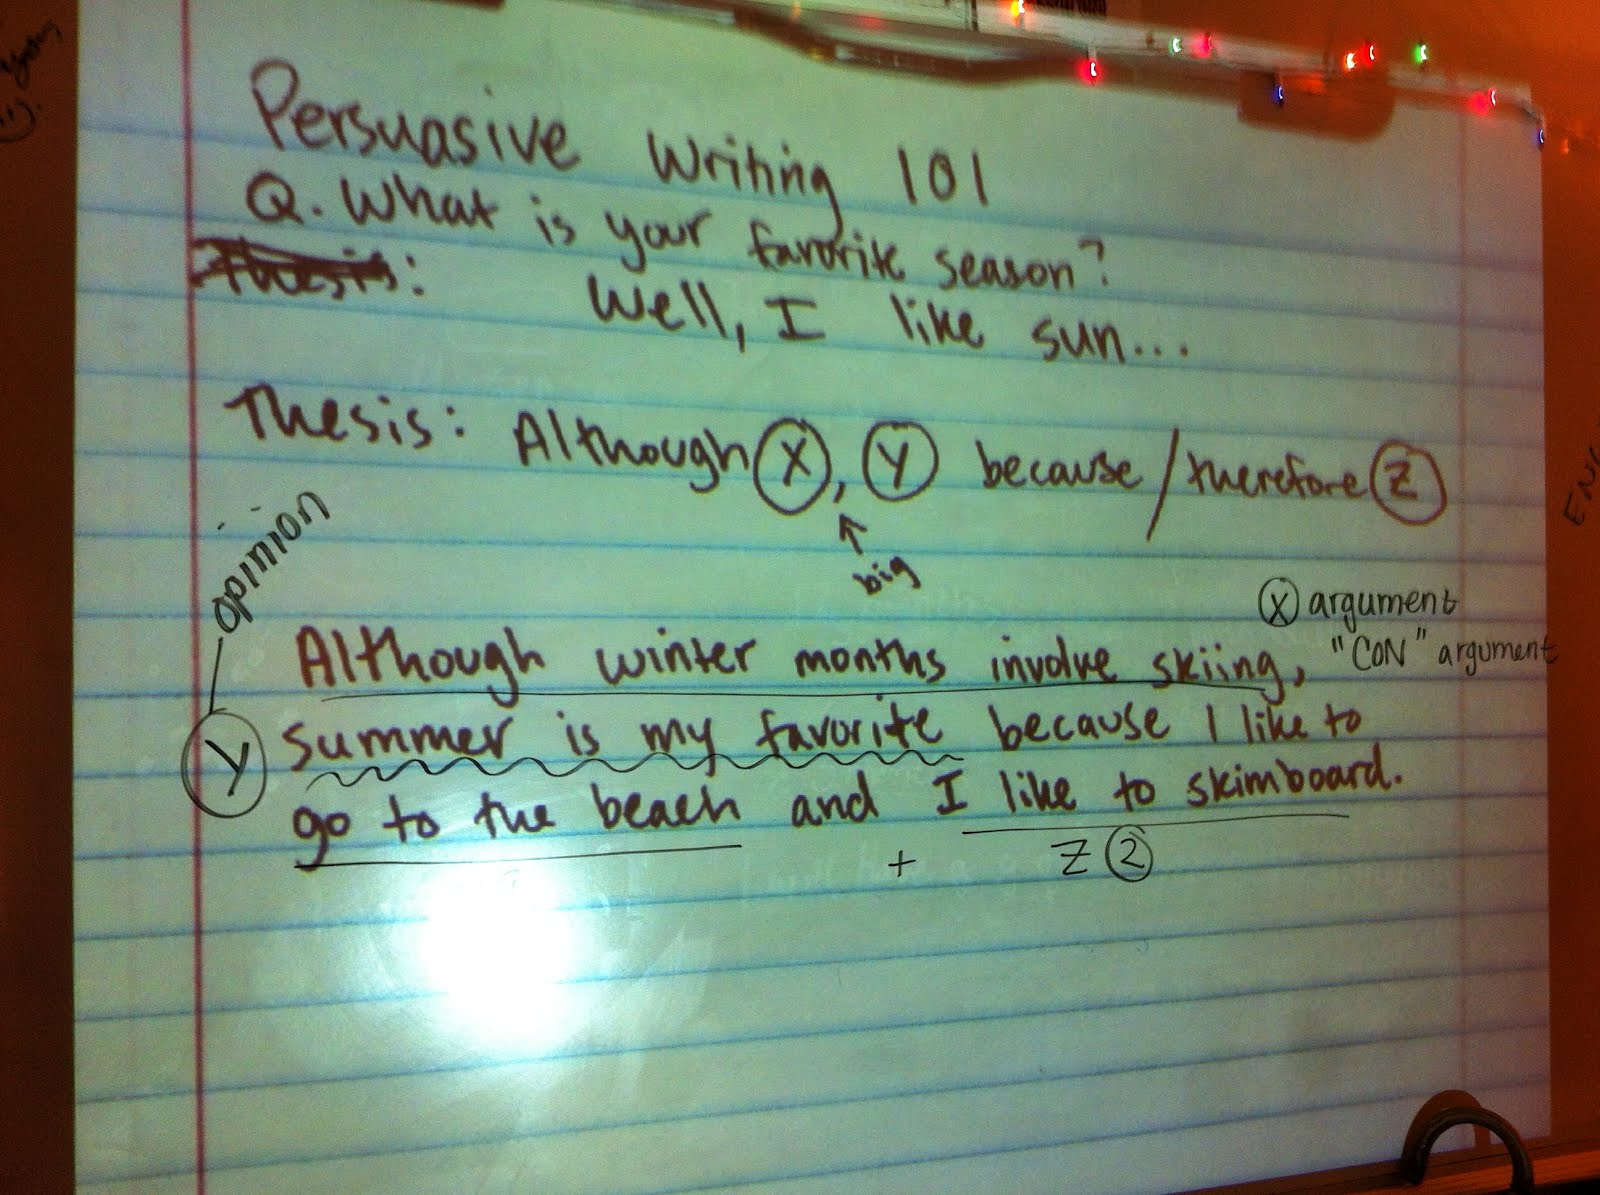 Persuasive Writing 101
Q. What is your favorite season?
Thesis: Well, I like sun...
Thesis: Although X, Y because/therefore Z
big
opinion
X argument
"CON" argument
Although winter months involve skiing,
Y summer is my favorite because I like to
go to the beach and I like to skimboard.
+ Z 2